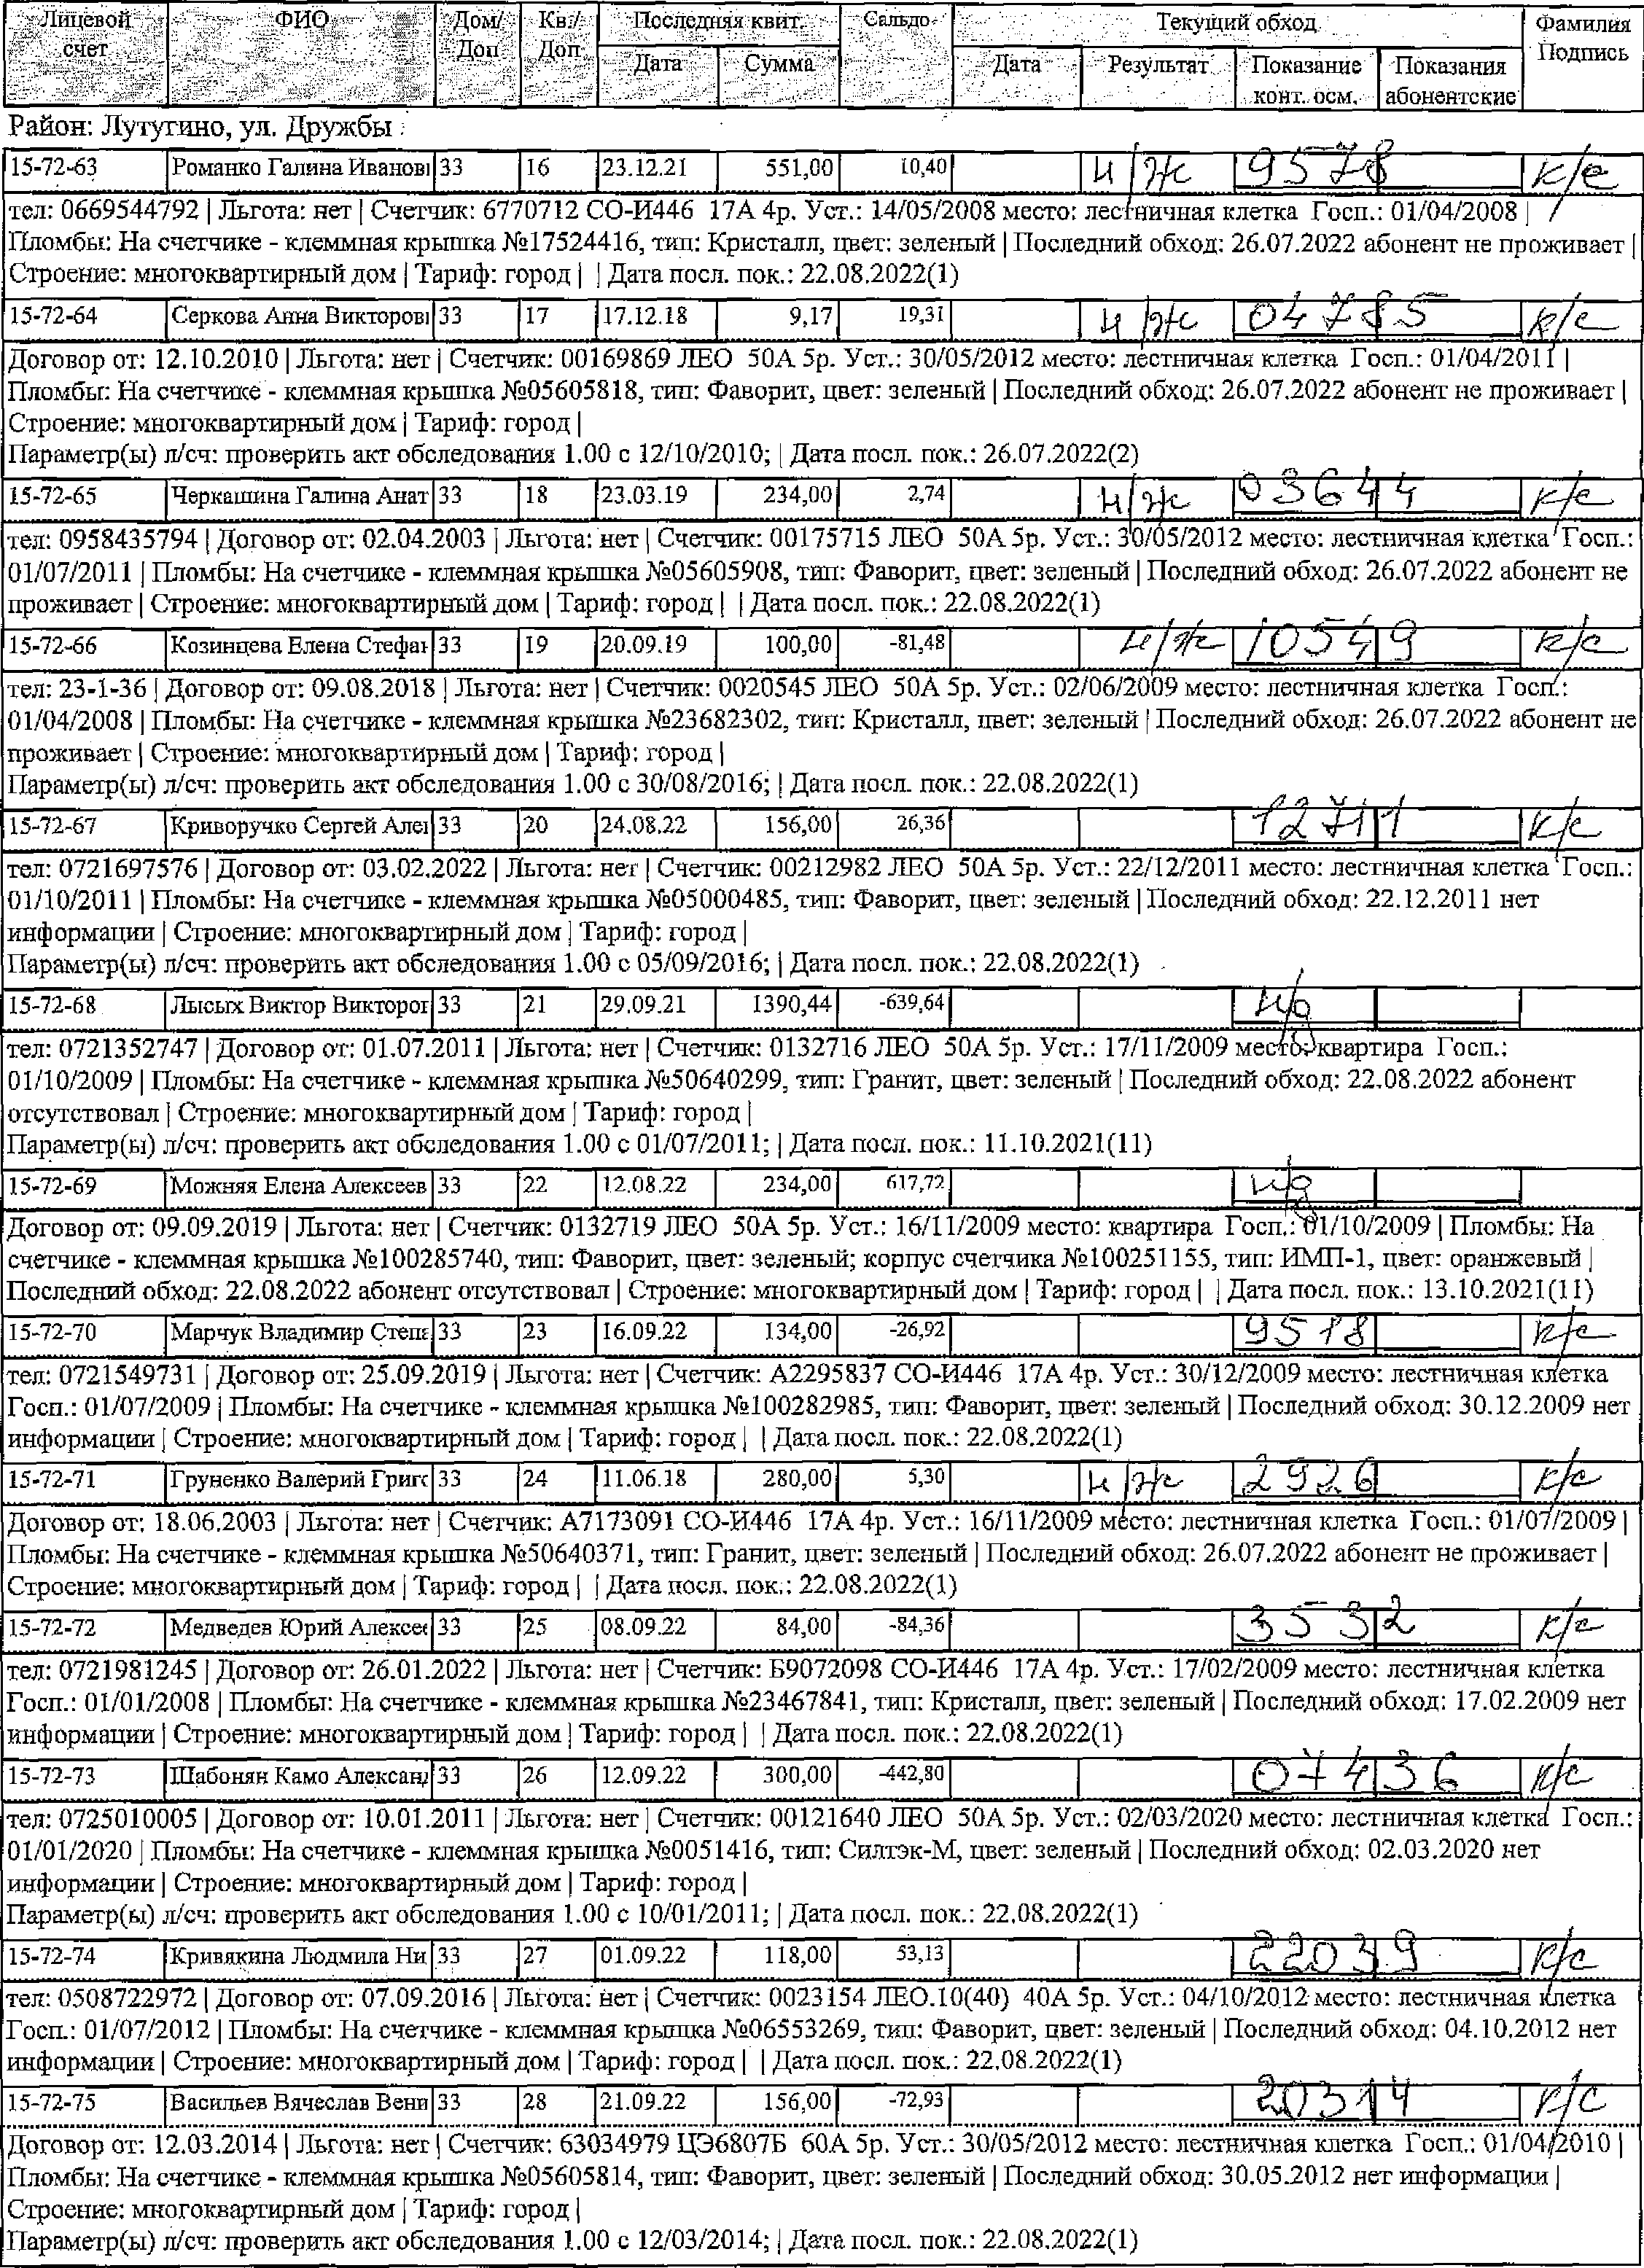 Лицевой счет ФИО Дом/Доп Кв./Доп Последняя квит. Сальдо Текущий обход Фамилия Подпись
Дата Сумма Дата Результат Показание конт. осм. Показания абонентские
Район: Лутугино, ул. Дружбы
15-72-63 Романко Галина Иванов 33 16 23.12.21 551,00 10,40 н/ж 9578 к/с
тел: 0669544792 | Льгота: нет | Счетчик: 6770712 СО-И446 17А 4р. Уст.: 14/05/2008 место: лестничная клетка Госп.: 01/04/2008 |
Пломбы: На счетчике - клеммная крышка №17524416, тип: Кристалл, цвет: зеленый | Последний обход: 26.07.2022 абонент не проживает |
Строение: многоквартирный дом | Тариф: город | | Дата посл. пок.: 22.08.2022(1)
15-72-64 Серкова Анна Викторов 33 17 17.12.18 9,17 19,31 н/ж 04785 к/с
Договор от: 12.10.2010 | Льгота: нет | Счетчик: 00169869 ЛЕО 50А 5р. Уст.: 30/05/2012 место: лестничная клетка Госп.: 01/04/2011 |
Пломбы: На счетчике - клеммная крышка №05605818, тип: Фаворит, цвет: зеленый | Последний обход: 26.07.2022 абонент не проживает |
Строение: многоквартирный дом | Тариф: город |
Параметр(ы) л/сч: проверить акт обследования 1.00 с 12/10/2010; | Дата посл. пок.: 26.07.2022(2)
15-72-65 Черкашина Галина Анат 33 18 23.03.19 234,00 2,74 н/ж 03644 к/с
тел: 0958435794 | Договор от: 02.04.2003 | Льгота: нет | Счетчик: 00175715 ЛЕО 50А 5р. Уст.: 30/05/2012 место: лестничная клетка Госп.:
01/07/2011 | Пломбы: На счетчике - клеммная крышка №05605908, тип: Фаворит, цвет: зеленый | Последний обход: 26.07.2022 абонент не
проживает | Строение: многоквартирный дом | Тариф: город | | Дата посл. пок.: 22.08.2022(1)
15-72-66 Козинцева Елена Стефан 33 19 20.09.19 100,00 -81,48 н/ж 10549 к/с
тел: 23-1-36 | Договор от: 09.08.2018 | Льгота: нет | Счетчик: 0020545 ЛЕО 50А 5р. Уст.: 02/06/2009 место: лестничная клетка Госп.:
01/04/2008 | Пломбы: На счетчике - клеммная крышка №23682302, тип: Кристалл, цвет: зеленый | Последний обход: 26.07.2022 абонент не
проживает | Строение: многоквартирный дом | Тариф: город |
Параметр(ы) л/сч: проверить акт обследования 1.00 с 30/08/2016; | Дата посл. пок.: 22.08.2022(1)
15-72-67 Криворучко Сергей Алек 33 20 24.08.22 156,00 26,36 12711 к/с
тел: 0721697576 | Договор от: 03.02.2022 | Льгота: нет | Счетчик: 00212982 ЛЕО 50А 5р. Уст.: 22/12/2011 место: лестничная клетка Госп.:
01/10/2011 | Пломбы: На счетчике - клеммная крышка №05000485, тип: Фаворит, цвет: зеленый | Последний обход: 22.12.2011 нет
информации | Строение: многоквартирный дом | Тариф: город |
Параметр(ы) л/сч: проверить акт обследования 1.00 с 05/09/2016; | Дата посл. пок.: 22.08.2022(1)
15-72-68 Лысых Виктор Викторов 33 21 29.09.21 1390,44 -639,64 н/д
тел: 0721352747 | Договор от: 01.07.2011 | Льгота: нет | Счетчик: 0132716 ЛЕО 50А 5р. Уст.: 17/11/2009 место: квартира Госп.:
01/10/2009 | Пломбы: На счетчике - клеммная крышка №50640299, тип: Гранит, цвет: зеленый | Последний обход: 22.08.2022 абонент
отсутствовал | Строение: многоквартирный дом | Тариф: город |
Параметр(ы) л/сч: проверить акт обследования 1.00 с 01/07/2011; | Дата посл. пок.: 11.10.2021(11)
15-72-69 Можняя Елена Алексеев 33 22 12.08.22 234,00 617,72 н/д
Договор от: 09.09.2019 | Льгота: нет | Счетчик: 0132719 ЛЕО 50А 5р. Уст.: 16/11/2009 место: квартира Госп.: 01/10/2009 | Пломбы: На
счетчике - клеммная крышка №100285740, тип: Фаворит, цвет: зеленый; корпус счетчика №100251155, тип: ИМП-1, цвет: оранжевый |
Последний обход: 22.08.2022 абонент отсутствовал | Строение: многоквартирный дом | Тариф: город | | Дата посл. пок.: 13.10.2021(11)
15-72-70 Марчук Владимир Степа 33 23 16.09.22 134,00 -26,92 9518 к/с
тел: 0721549731 | Договор от: 25.09.2019 | Льгота: нет | Счетчик: А2295837 СО-И446 17А 4р. Уст.: 30/12/2009 место: лестничная клетка
Госп.: 01/07/2009 | Пломбы: На счетчике - клеммная крышка №100282985, тип: Фаворит, цвет: зеленый | Последний обход: 30.12.2009 нет
информации | Строение: многоквартирный дом | Тариф: город | | Дата посл. пок.: 22.08.2022(1)
15-72-71 Груненко Валерий Григо 33 24 11.06.18 280,00 5,30 н/ж 2926 к/с
Договор от: 18.06.2003 | Льгота: нет | Счетчик: А7173091 СО-И446 17А 4р. Уст.: 16/11/2009 место: лестничная клетка Госп.: 01/07/2009 |
Пломбы: На счетчике - клеммная крышка №50640371, тип: Гранит, цвет: зеленый | Последний обход: 26.07.2022 абонент не проживает |
Строение: многоквартирный дом | Тариф: город | | Дата посл. пок.: 22.08.2022(1)
15-72-72 Медведев Юрий Алексее 33 25 08.09.22 84,00 -84,36 3532 к/с
тел: 0721981245 | Договор от: 26.01.2022 | Льгота: нет | Счетчик: Б9072098 СО-И446 17А 4р. Уст.: 17/02/2009 место: лестничная клетка
Госп.: 01/01/2008 | Пломбы: На счетчике - клеммная крышка №23467841, тип: Кристалл, цвет: зеленый | Последний обход: 17.02.2009 нет
информации | Строение: многоквартирный дом | Тариф: город | | Дата посл. пок.: 22.08.2022(1)
15-72-73 Шабонян Камо Александ 33 26 12.09.22 300,00 -442,80 07436 к/с
тел: 0725010005 | Договор от: 10.01.2011 | Льгота: нет | Счетчик: 00121640 ЛЕО 50А 5р. Уст.: 02/03/2020 место: лестничная клетка Госп.:
01/01/2020 | Пломбы: На счетчике - клеммная крышка №0051416, тип: Силтэк-М, цвет: зеленый | Последний обход: 02.03.2020 нет
информации | Строение: многоквартирный дом | Тариф: город |
Параметр(ы) л/сч: проверить акт обследования 1.00 с 10/01/2011; | Дата посл. пок.: 22.08.2022(1)
15-72-74 Кривякина Людмила Ни 33 27 01.09.22 118,00 53,13 22039 к/с
тел: 0508722972 | Договор от: 07.09.2016 | Льгота: нет | Счетчик: 0023154 ЛЕО.10(40) 40А 5р. Уст.: 04/10/2012 место: лестничная клетка
Госп.: 01/07/2012 | Пломбы: На счетчике - клеммная крышка №06553269, тип: Фаворит, цвет: зеленый | Последний обход: 04.10.2012 нет
информации | Строение: многоквартирный дом | Тариф: город | | Дата посл. пок.: 22.08.2022(1)
15-72-75 Васильев Вячеслав Вени 33 28 21.09.22 156,00 -72,93 20314 к/с
Договор от: 12.03.2014 | Льгота: нет | Счетчик: 63034979 ЦЭ6807Б 60А 5р. Уст.: 30/05/2012 место: лестничная клетка Госп.: 01/04/2010 |
Пломбы: На счетчике - клеммная крышка №05605814, тип: Фаворит, цвет: зеленый | Последний обход: 30.05.2012 нет информации |
Строение: многоквартирный дом | Тариф: город |
Параметр(ы) л/сч: проверить акт обследования 1.00 с 12/03/2014; | Дата посл. пок.: 22.08.2022(1)